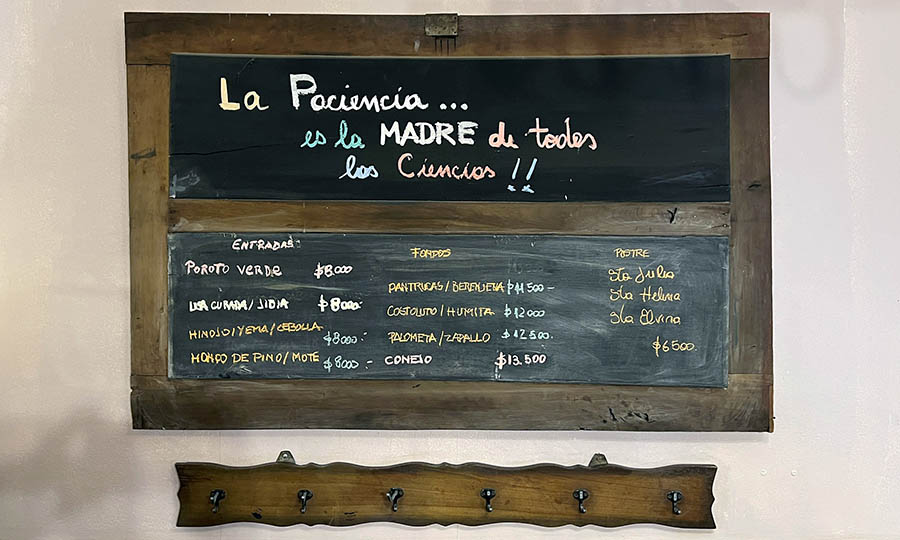 La Paciencia...
es la MADRE de todas
las Ciencias!!
ENTRADAS:
POROTO VERDE $8.000
LISA CURADA/JIBIA $8000.
HINOJO/YEMA/CEBOLLA $8000.-
HONGO DE PINO/MOTE $8000.-
FONDOS
PANTRUCAS/BERENJENA $11500-
COSTOLUTO/HUMITA $12000
PALOMETA/ZAPALLO $12.500.
CONEJO $13.500
POSTRE
Sta Julia
Sta Helena
Sta Elvira
$6500.